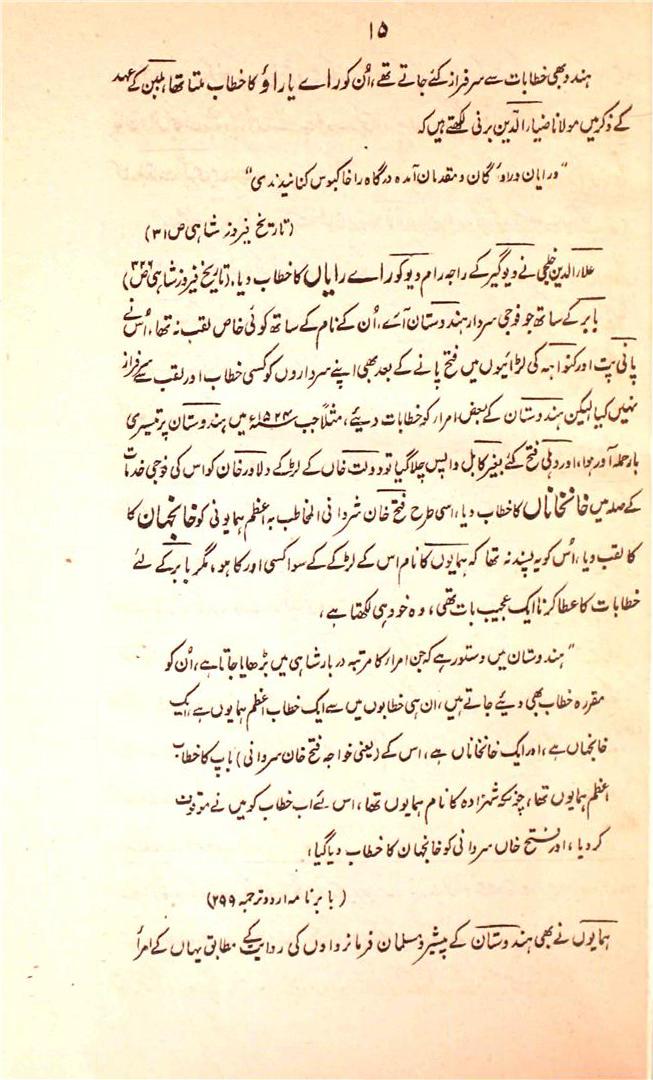 ۱۵
ہندو بھی خطابات سے سرفراز کئے جاتے تھے، اُن کو راے یا راؤ کا خطاب ملتا تھا، بلبن کے عہد
کے ذکر میں مولانا ضیاء الدین برنی لکھتے ہیں کہ
"ورایان و راوٗگان و مقدمان آمدہ درگاہ را خاکبوس کنانیدندی"
(تاریخ فیروز شاہی ص ۳۱)
علاء الدین خلجی نے دیوگیر کے راجہ رام دیو کو راے رایاں کا خطاب دیا، (تاریخ فیروز شاہی ص ۳۲۶)
بابر کے ساتھ جو فوجی سردار ہندوستان آے، اُن کے نام کے ساتھ کوئی خاص لقب نہ تھا، اُس نے
پانی پت اور کنواہہ کی لڑائیوں میں فتح پانے کے بعد بھی اپنے سرداروں کو کسی خطاب اور لقب سے سرفراز
نہیں کیا لیکن ہندوستان کے بعض امراء کو خطابات دیئے، مثلاً جب ۱۵۲۴ء میں ہندوستان پر تیسری
بار حملہ آور ہوا، اور دہلی فتح کئے بغیر کابل واپس چلا گیا تو دولت خاں کے لڑکے دلاور خان کو اس کی فوجی خدمات
کے صلہ میں خانخاناں کا خطاب دیا، اسی طرح فتح خان شروانی المخاطب بہ اعظم ہمایونی کو خانجہان کا
کا لقب دیا، اُس کو یہ پسند نہ تھا کہ ہمایوں کا نام اس کے لڑکے کے سوا کسی اور کا ہو، مگر بابر کے لئے
خطابات کا عطا کرنا ایک عجیب بات تھی، وہ خود ہی لکھتا ہے،
"ہندوستان میں دستور ہے کہ جن امراء کا مرتبہ دربار شاہی میں بڑھایا جاتا ہے، اُن کو
مقررہ خطاب بھی دیئے جاتے ہیں، ان ہی خطابوں میں سے ایک خطاب اعظم ہمایوں ہے، ایک
خانجہاں ہے، اور ایک خانخاناں ہے، اس کے (یعنی خواجہ فتح خان سروانی) باپ کا خطاب
اعظم ہمایوں تھا، چونکہ شہزادہ کا نام ہمایوں تھا، اس لئے اب خطاب کو میں نے موقوف
کر دیا، اور فتح خاں سروانی کو خانجہان کا خطاب دیا گیا،
(بابر نامہ اردو ترجمہ ۲۹۹)
ہمایوں نے بھی ہندوستان کے پیشرو مسلمان فرمانرواوں کی روایت کے مطابق یہاں کے امراء